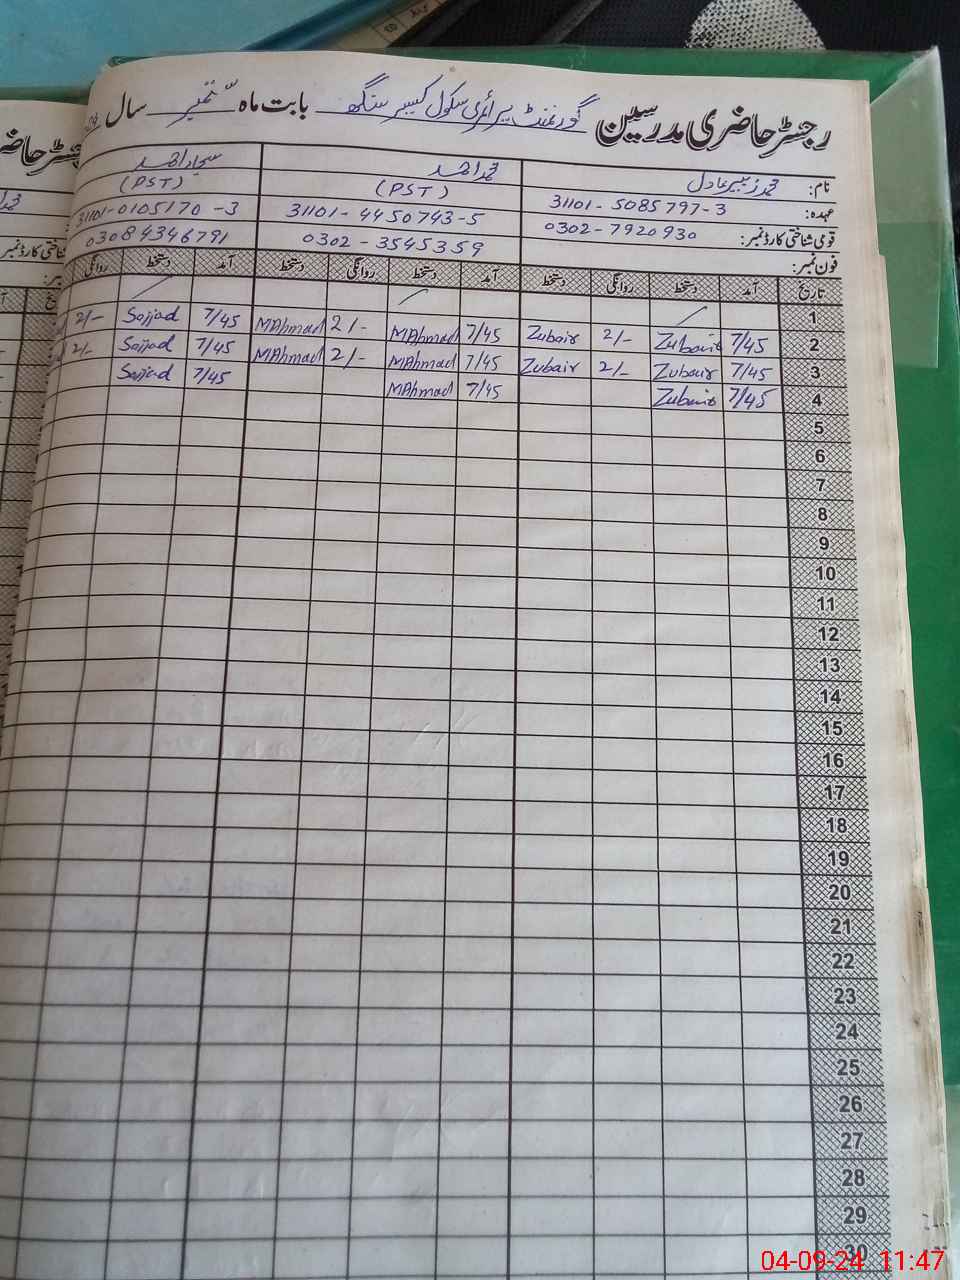 رجسٹر حاضری مدرسین گورنمنٹ پرائمری سکول کیسر سنگھ بابت ماہ ستمبر سال
نام: محمد زبیر عادل محمد احمد سجاد احمد
عہدہ: (PST) (PST)
قومی شناختی کارڈ نمبر: 31101-5085797-3 31101-4450743-5 31101-0105170-3
فون نمبر: 0302-7920930 0302-3545359 03084346791
تاریخ آمد دستخط روانگی دستخط آمد دستخط روانگی دستخط آمد دستخط روانگی
1
2 7/45 Zubair 2/- Zubair 7/45 MAhmad 2/- MAhmad 7/45 Sajjad 2/-
3 7/45 Zubair 2/- Zubair 7/45 MAhmad 2/- MAhmad 7/45 Sajjad 2/-
4 7/45 Zubair 7/45 MAhmad 7/45 Sajjad
5
6
7
8
9
10
11
12
13
14
15
16
17
18
19
20
21
22
23
24
25
26
27
28
29
30
04-09-24 11:47